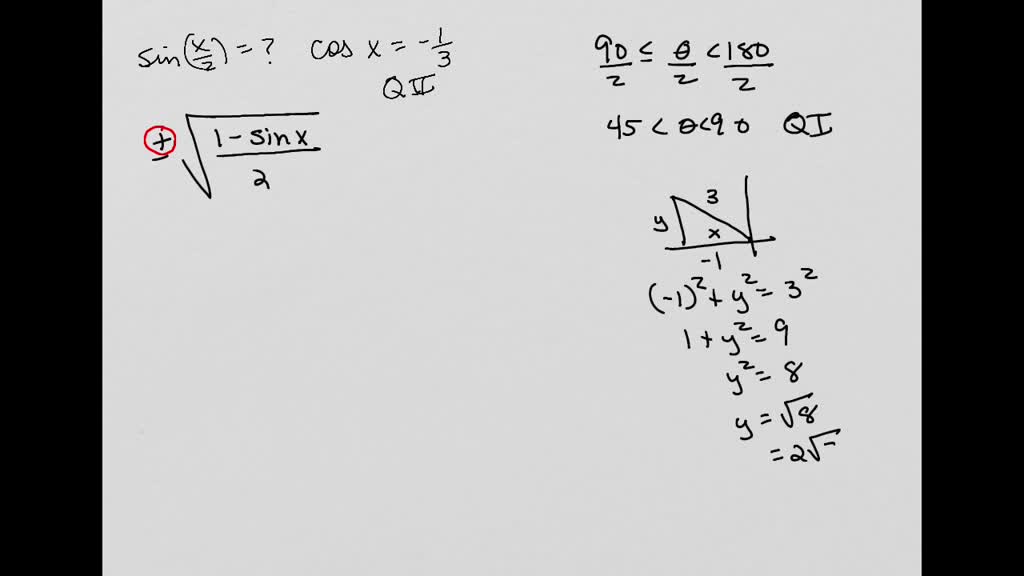 sin(x/2) = ? cos x = -1/3
QII
± √((1 - sin x)/2)
90/2 ≤ θ/2 < 180/2
45 < θ < 90 QI
3
y
x
-1
(-1)² + y² = 3²
1 + y² = 9
y² = 8
y = √8
= 2√